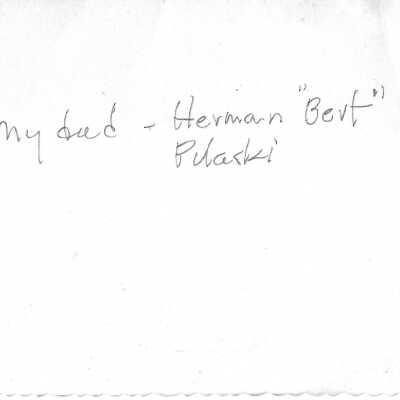 My dad - Herman "Bert"
Pulaski